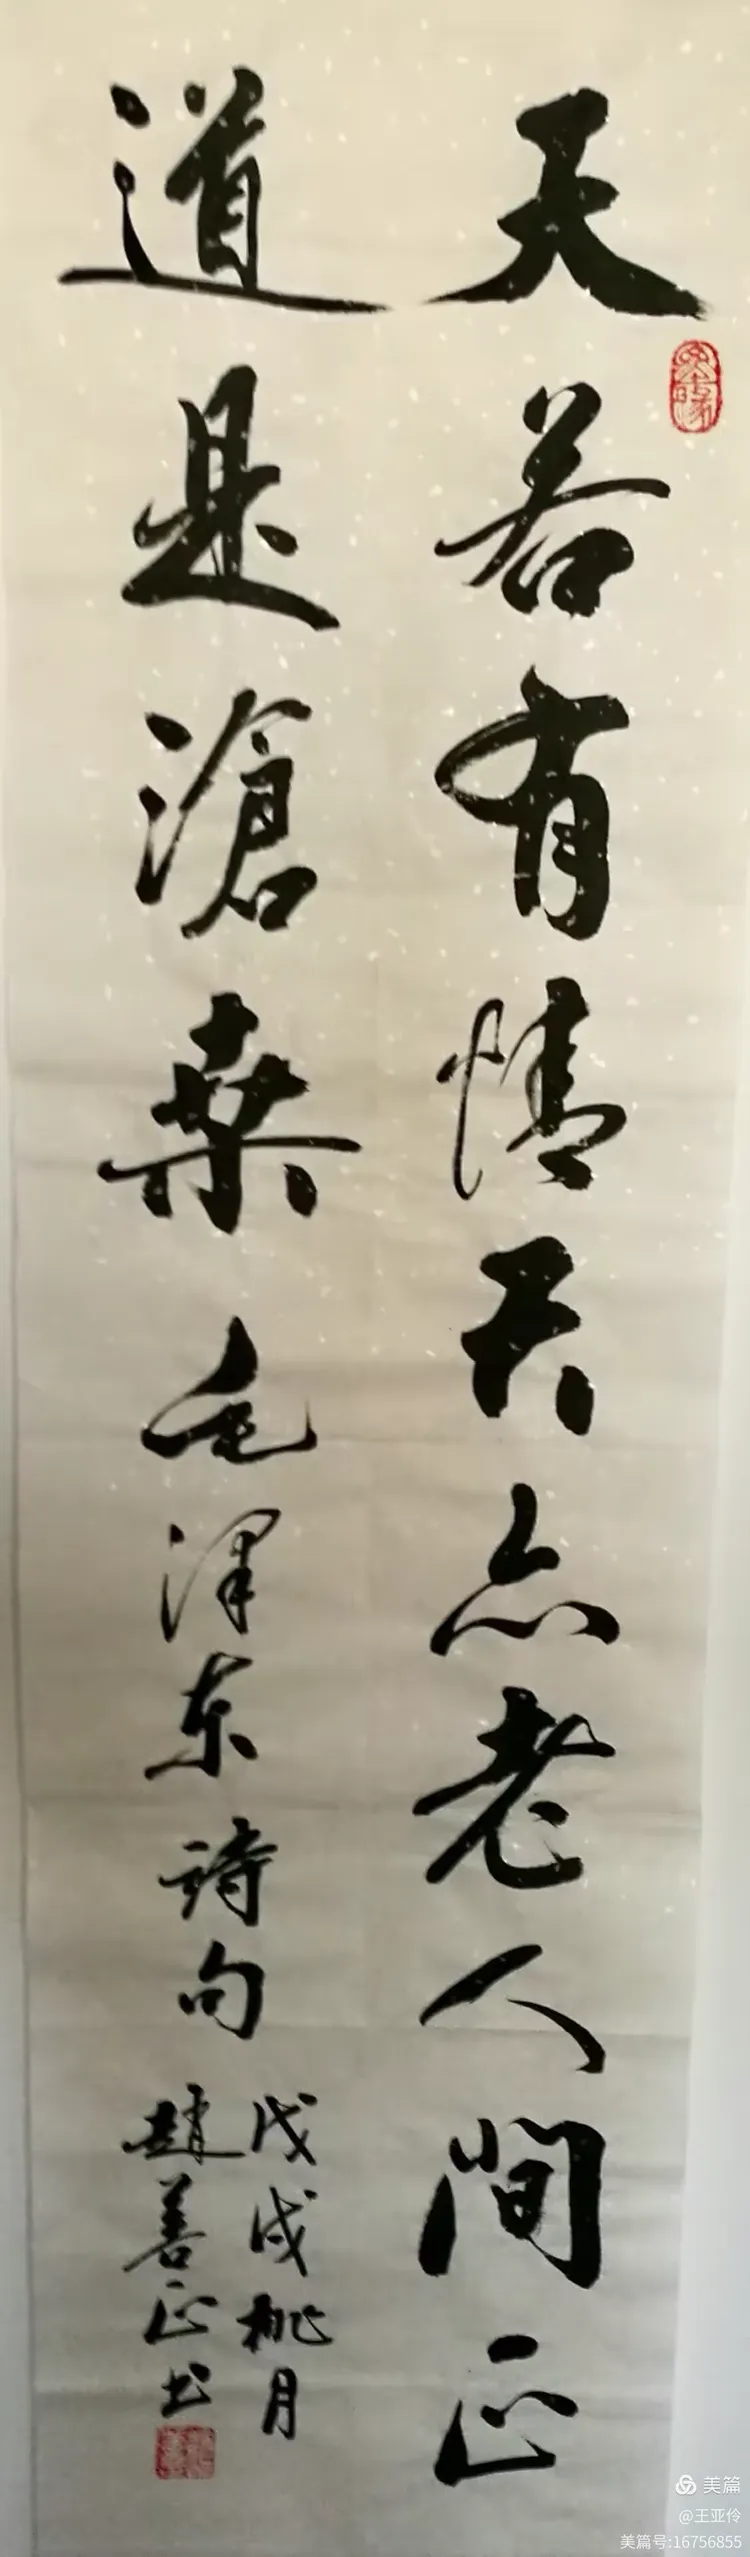 天若有情天亦老人間正
道是滄桑毛澤东詩句
戊戌桃月
趙善正书
美篇
@王亚伶
美篇号:16756855